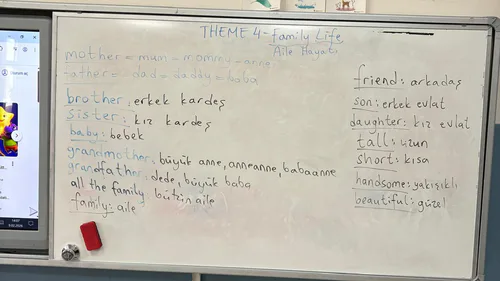 THEME 4 - Family Life
Aile Hayatı
mother = mum = mommy = anne
father = dad = daddy = baba
brother: erkek kardeş
sister: kız kardeş
baby: bebek
grandmother: büyük anne, anneanne, babaanne
grandfather: dede, büyük baba
all the family bütün aile
family: aile
friend: arkadaş
son: erkek evlat
daughter: kız evlat
tall: uzun
short: kısa
handsome: yakışıklı
beautiful: güzel